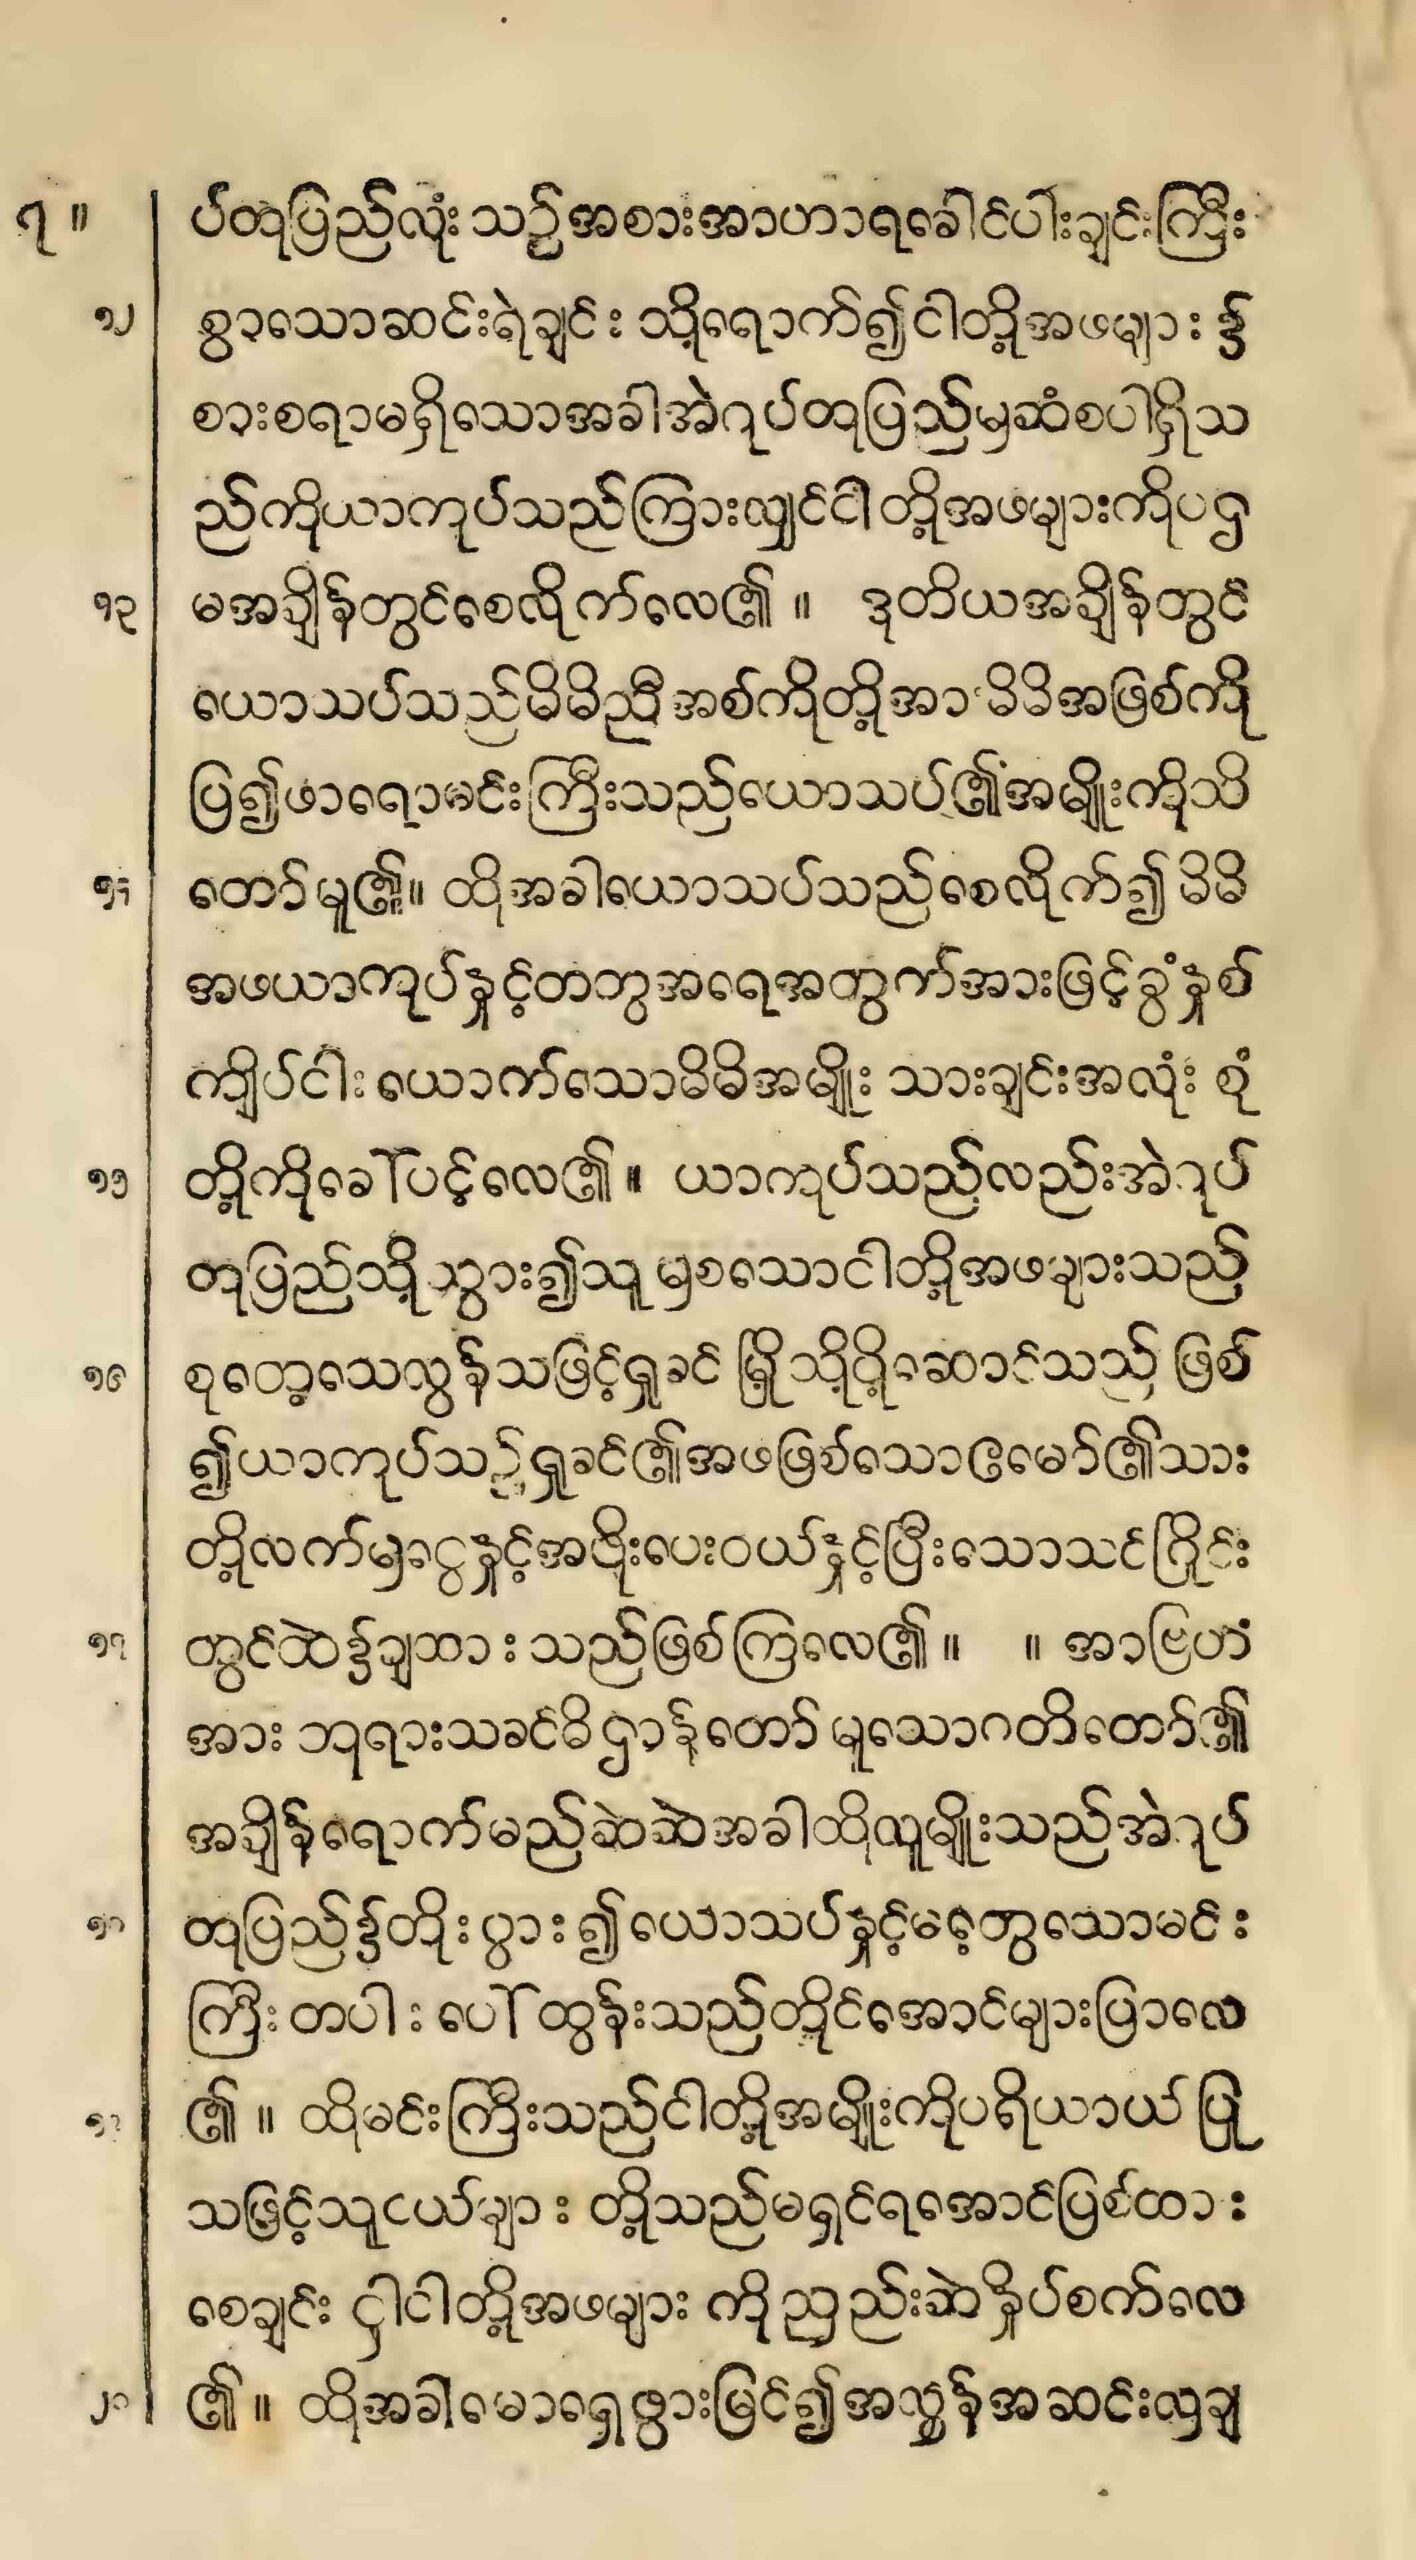 ၇ ။ ပ်တုပြည်လုံး သဉ်အစားအာဟာရခေါင်ပါးချင်းကြီး
၁၂ စွာသောဆင်းရဲချင်း သို့ရောက်၍ငါတို့အဖများ ၌
စားစရာမရှိသောအခါအဲဂုပ်တုပြည်မှဆံစပါရှိသ
ည်ကိုယာကုပ်သည်ကြားလျှင်ငါတို့အဖများကိုပဌ
၁၃ မအချိန်တွင်စေလိုက်လေ၏ ။ ဒုတိယအချိန်တွင်
ယောသပ်သည်မိမိညီအစ်ကိုတို့အားမိမိအဖြစ်ကို
ပြ၍ဖာရောမင်းကြီးသည်ယောသပ်၏အမျိုးကိုသိ
၁၄ တော်မူ၏။ ထိုအခါယောသပ်သည်စေလိုက်၍မိမိ
အဖယာကုပ်နှင့်တကွအရေအတွက်အားဖြင့်ခွံနှစ်
ကျိပ်ငါး ယောက်သောမိမိအမျိုး သားချင်းအလုံး စုံ
၁၅ တို့ကိုခေါ်ပင့်လေ၏ ။ ယာကုပ်သည်လည်းအဲဂုပ်
တုပြည်သို့သွား၍သူမှစသောငါတို့အဖများသည်
၁၆ စုတေ့သေလွန်သဖြင့်ရှုခင် မြို့သို့ပို့ဆောင်သည်ဖြစ်
၍ယာကုပ်သဉ်ရှုခင်၏အဖဖြစ်သောဧမော်၏သား
တို့လက်မှငွေနှင့်အဖိုးပေးဝယ်နှင့်ပြီးသောသင်္ဂြိုင်း
၁၇ တွင်ထဲ၌ချထား သည်ဖြစ်ကြလေ၏ ။ ။ အာဗြဟံ
အား ဘုရားသခင်ဓိဌာန်တော် မူသောဂတိတော်၏
အချိန်ရောက်မည်ဆဲဆဲအခါထိုလူမျိုးသည်အဲဂုပ်
၁၈ တုပြည်၌တိုးပွား၍ယောသပ်နှင့်မတွေ့သောမင်း
ကြီး တပါး ပေါ်ထွန်းသည်တိုင်အောင်များပြာလေ
၁၉ ၏ ။ ထိုမင်းကြီးသည်ငါတို့အမျိုးကိုပရိယာယ်ပြု
သဖြင့်သူငယ်များ တို့သည်မရှင်ရအောင်ပြစ်ထား
စေချင်း ငှါငါတို့အဖများ ကိုညှည်းဆဲနှိပ်စက်လေ
၂၀ ၏ ။ ထိုအခါမောရှေဖွားမြင်၍အလွန်အဆင်းလှချ